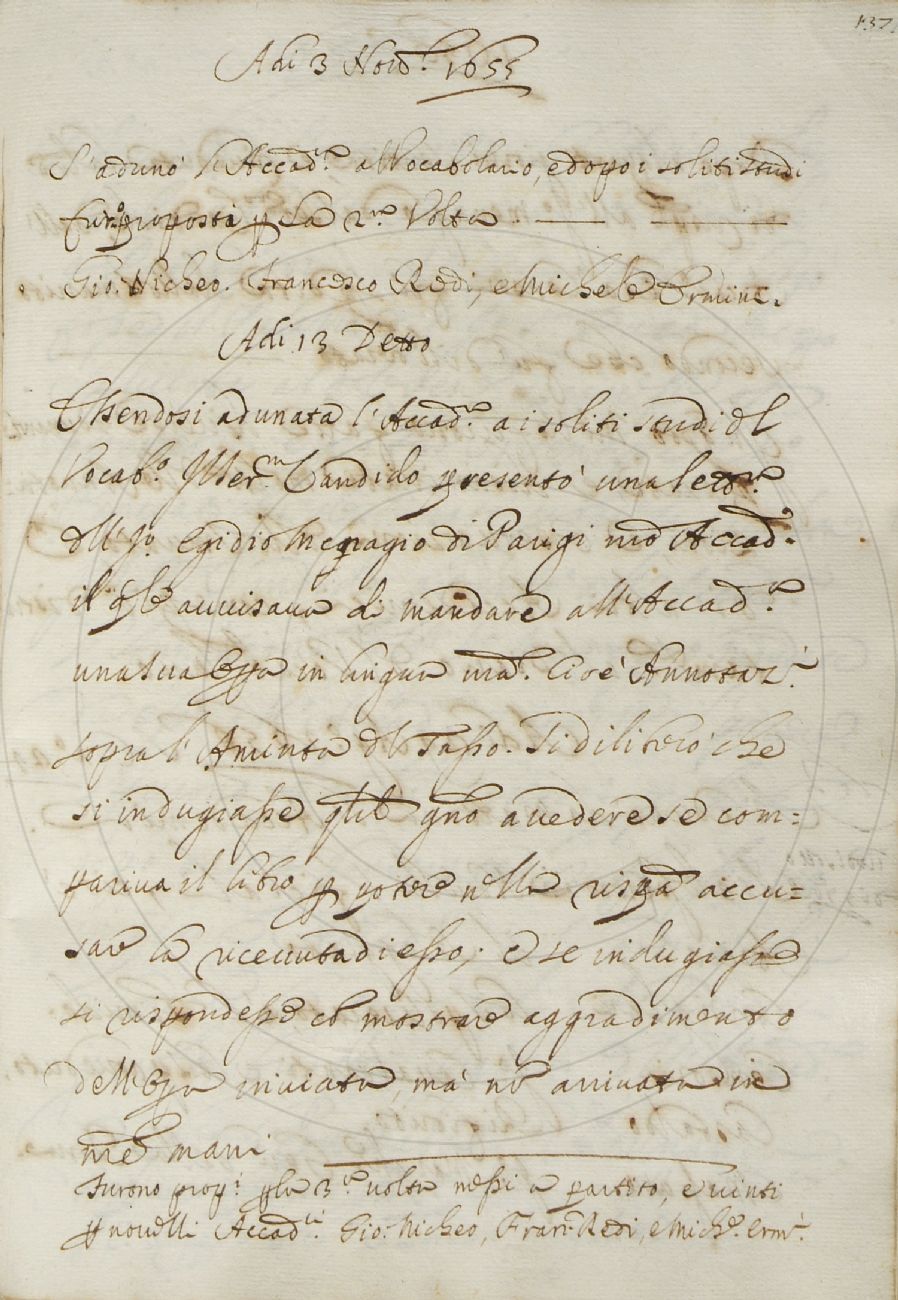 137.
Adi 3 Novbr. 1655
S'adunò l'Accad.ª al Vocabolario, e dopo i soliti studi
furº proposti p la 2ª Volta
Gio: Nicheo. Francesco Redi, e Michele Ermini.
Adi 13 Detto
Essendosi adunata l'Accad.ª a i soliti studi del
Vocabº. Ill Serm Candido presentò una lettª.
dll' Egidio Menagio di Parigi nrõ Accadº.
il qle avvisava di mandare all'Accad.ª
una sua Opa in lingua nrã. Cioè Annotazi.
sopra l'Aminta dl Tasso. Si dilibero che
si indugiasse qlche gno a vedere se com=
pariva il libro p potere nella rispã accu=
sare la ricevuta di esso; e se indugiasse
si rispondesse cõ mostrare aggradimento
dell'Opa inviata, ma nõ arrivata in
nrẽ mani
Furono propi. p la 3ª volta messi a partito, e vinti
p novelli Accadci. Gio: Nicheo, Fran: Redi, e Miche. Ermi.